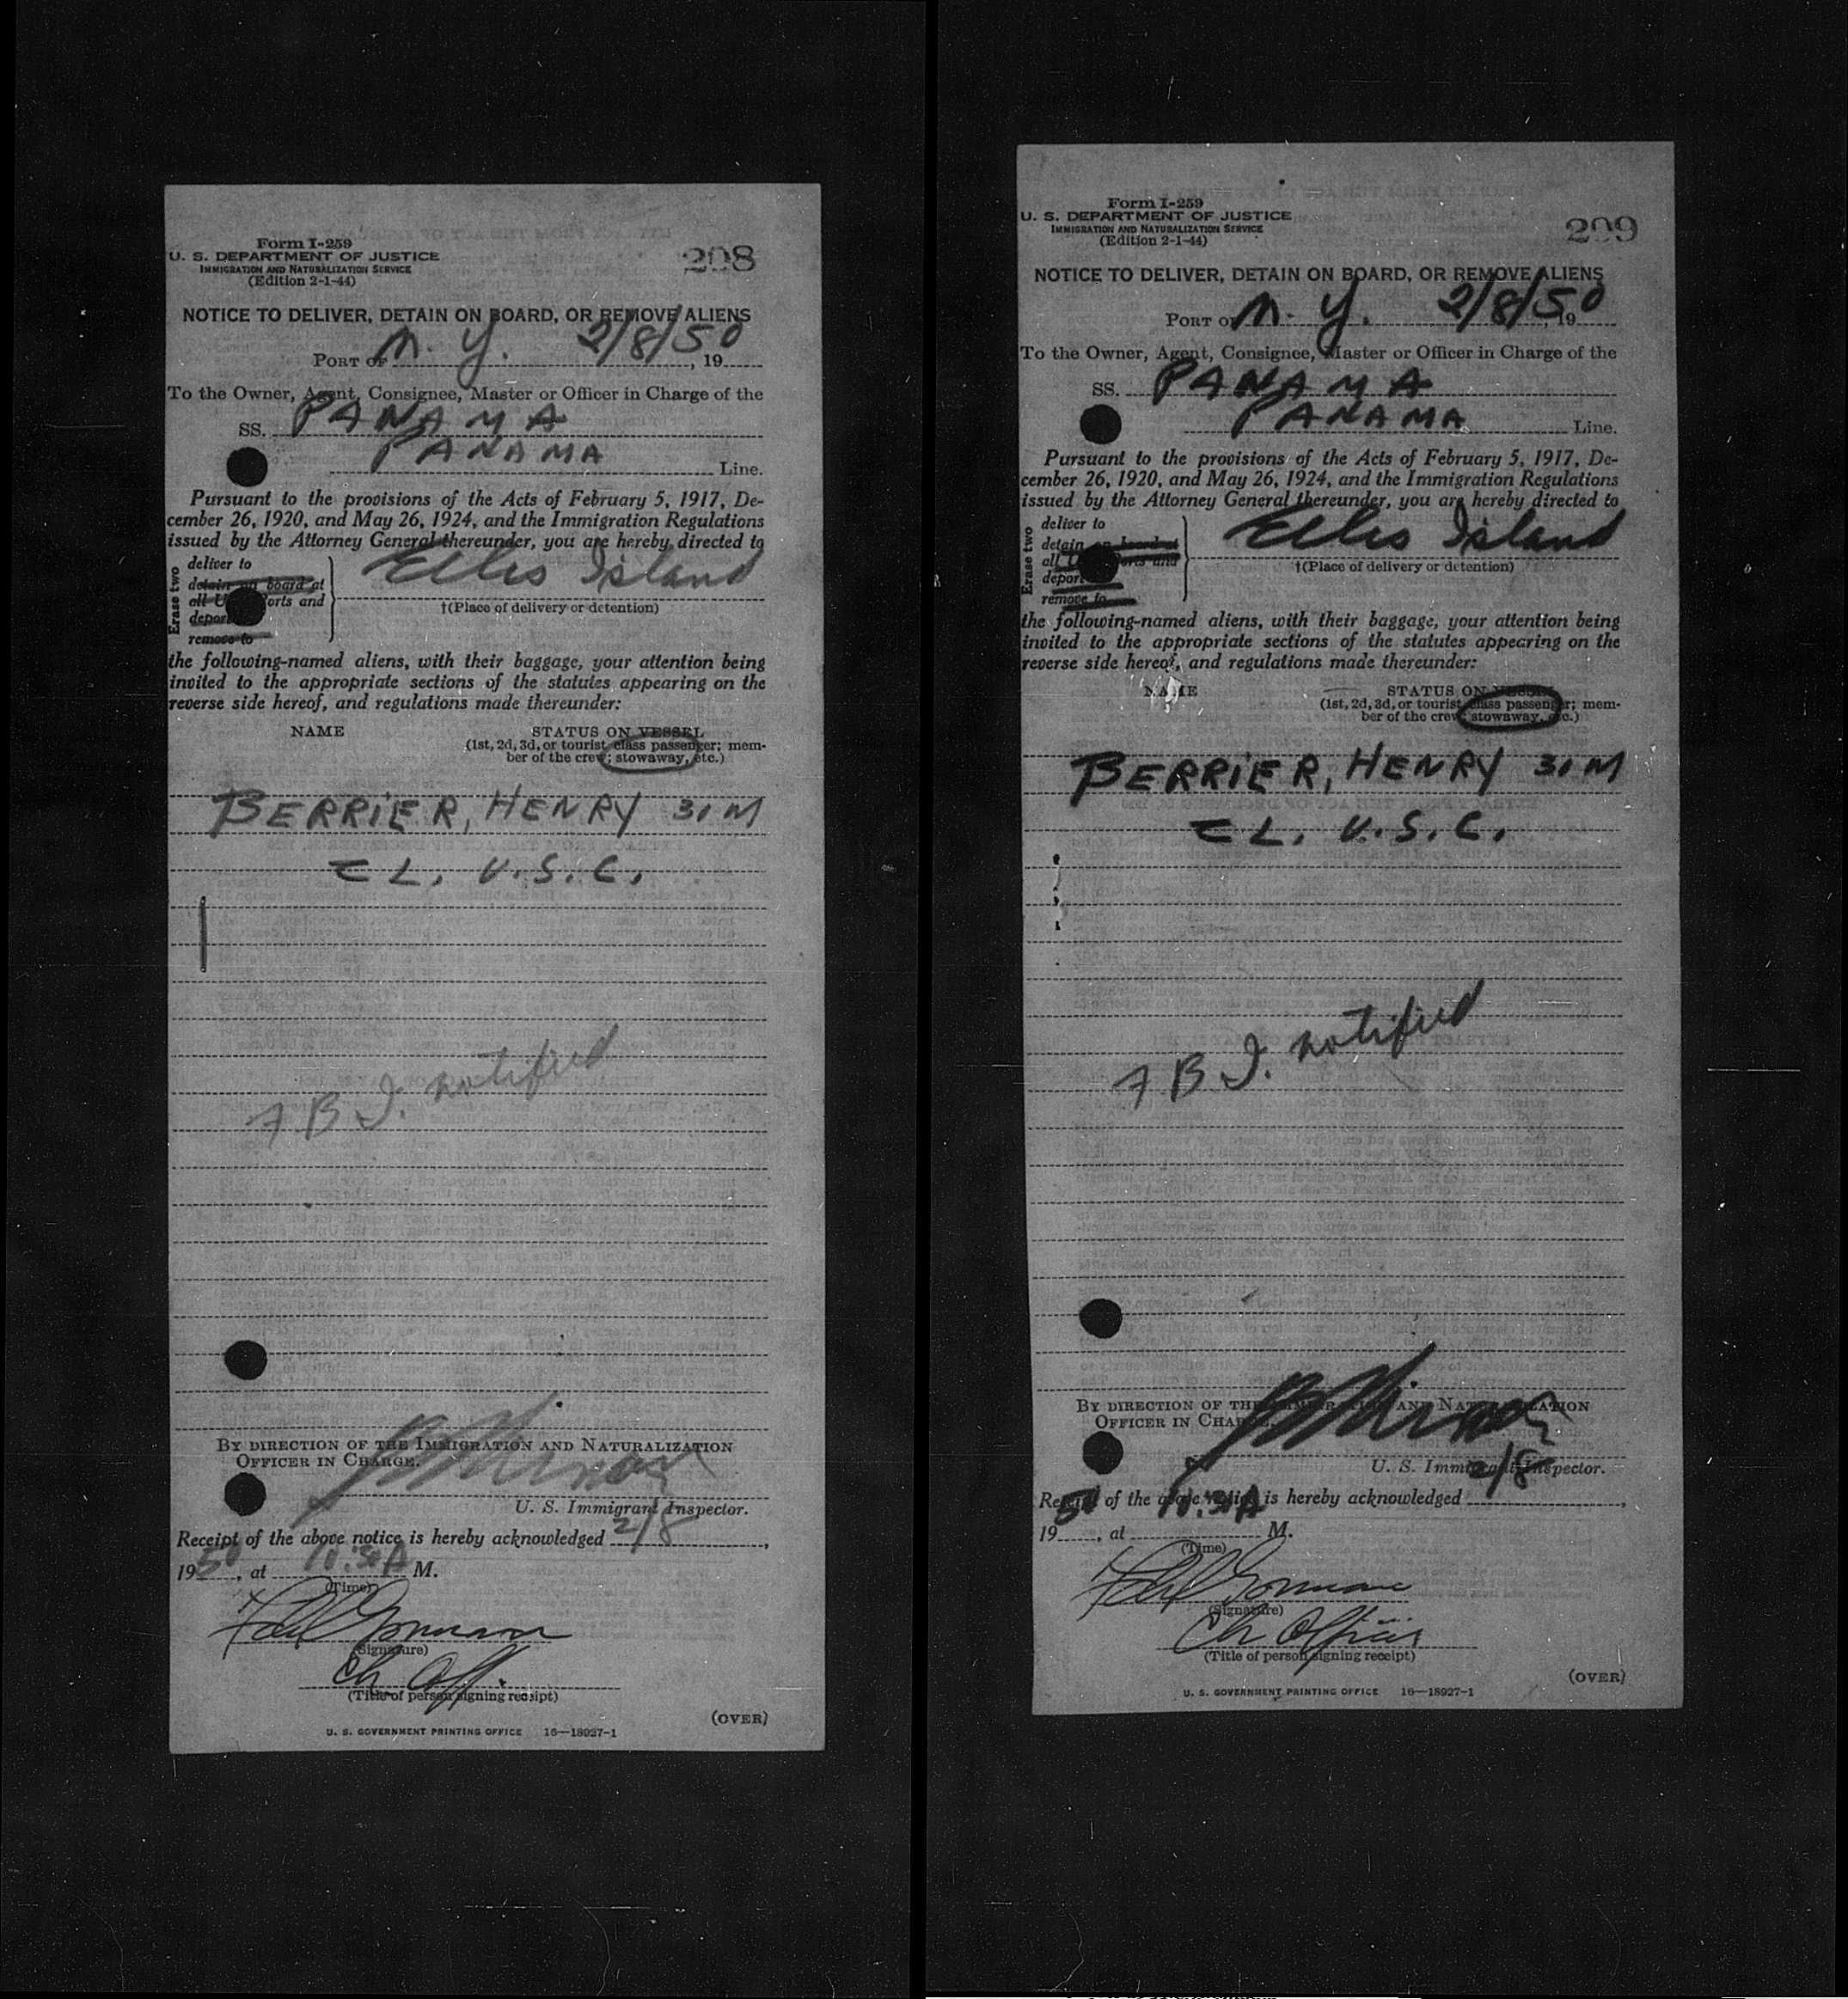 Form I-259
U. S. DEPARTMENT OF JUSTICE
IMMIGRATION AND NATURALIZATION SERVICE
(Edition 2-1-44)
208
NOTICE TO DELIVER, DETAIN ON BOARD, OR REMOVE ALIENS
PORT OF N. Y. 2/8/50, 19
To the Owner, Agent, Consignee, Master or Officer in Charge of the
SS. PANAMA
PANAMA Line.
Pursuant to the provisions of the Acts of February 5, 1917, De-
cember 26, 1920, and May 26, 1924, and the Immigration Regulations
issued by the Attorney General thereunder, you are hereby directed to
Erase two
deliver to
detain on board at
all U ports and
deport
remove to
Ellis Island
†(Place of delivery or detention)
the following-named aliens, with their baggage, your attention being
invited to the appropriate sections of the statutes appearing on the
reverse side hereof, and regulations made thereunder:
NAME STATUS ON VESSEL
(1st, 2d, 3d, or tourist class passenger; mem-
ber of the crew; stowaway, etc.)
BERRIER, HENRY 31 M
CL. U.S.C.
F B I. notified
BY DIRECTION OF THE IMMIGRATION AND NATURALIZATION
OFFICER IN CHARGE.
U. S. Immigrant Inspector.
Receipt of the above notice is hereby acknowledged 2/8,
1950, at 10:30 A M.
(Time)
(Signature)
Ch Off.
(Title of person signing receipt)
(OVER)
U. S. GOVERNMENT PRINTING OFFICE 16—18927-1
Form I-259
U. S. DEPARTMENT OF JUSTICE
IMMIGRATION AND NATURALIZATION SERVICE
(Edition 2-1-44)
209
NOTICE TO DELIVER, DETAIN ON BOARD, OR REMOVE ALIENS
PORT OF N. Y. 2/8/50, 19
To the Owner, Agent, Consignee, Master or Officer in Charge of the
SS. PANAMA
PANAMA Line.
Pursuant to the provisions of the Acts of February 5, 1917, De-
cember 26, 1920, and May 26, 1924, and the Immigration Regulations
issued by the Attorney General thereunder, you are hereby directed to
Erase two
deliver to
detain on board at
all U ports and
deport
remove to
Ellis Island
†(Place of delivery or detention)
the following-named aliens, with their baggage, your attention being
invited to the appropriate sections of the statutes appearing on the
reverse side hereof, and regulations made thereunder:
NAME STATUS ON VESSEL
(1st, 2d, 3d, or tourist class passenger; mem-
ber of the crew; stowaway, etc.)
BERRIER, HENRY 31 M
CL. U.S.C.
F B I. notified
BY DIRECTION OF THE IMMIGRATION AND NATURALIZATION
OFFICER IN CHARGE.
U. S. Immigrant Inspector.
2/8
Receipt of the above notice is hereby acknowledged,
50 10:30A
19, at M.
(Time)
(Signature)
Ch Officer
(Title of person signing receipt)
(OVER)
U. S. GOVERNMENT PRINTING OFFICE 16—18927-1